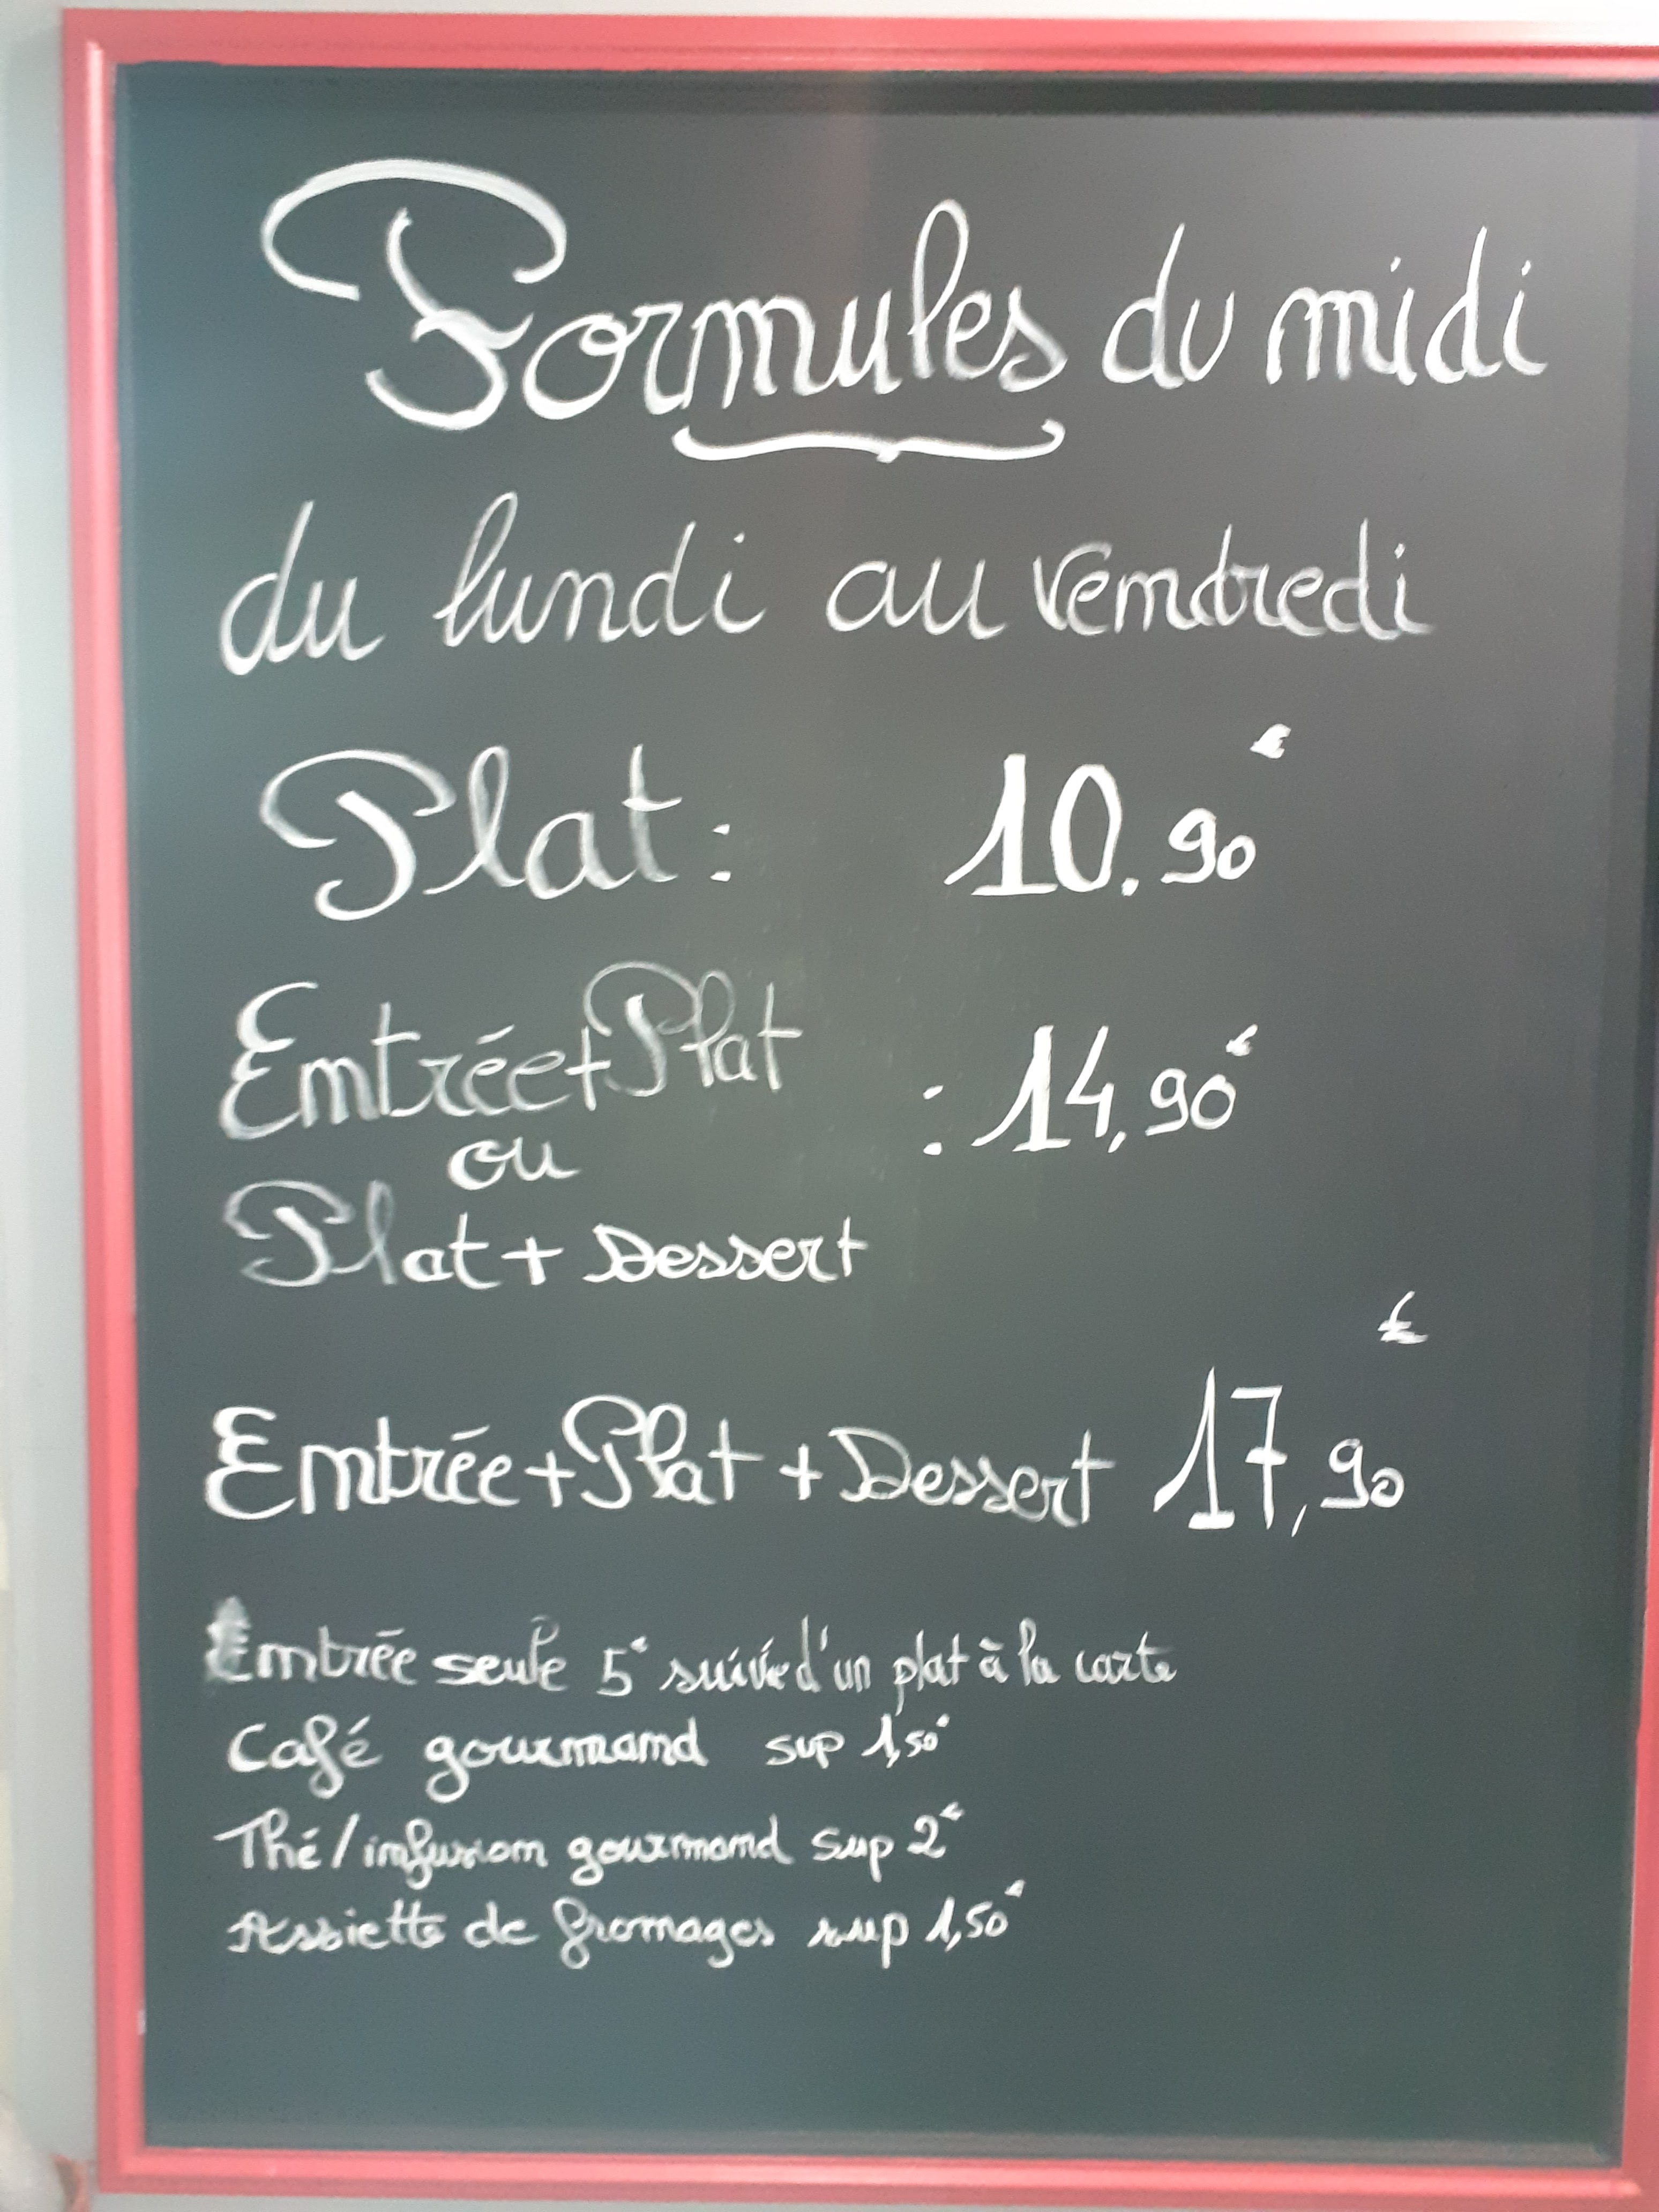 Formules du midi
du lundi au vendredi
Plat : 10.90€
Entrée+Plat
: 14,90€
ou
Plat + Dessert
Entrée+Plat + Dessert 17,90€
Entrée seule 5€ suivie d'un plat à la carte
Café gourmand sup 1,50€
Thé/infusion gourmand sup 2€
Assiette de fromages sup 1,50€